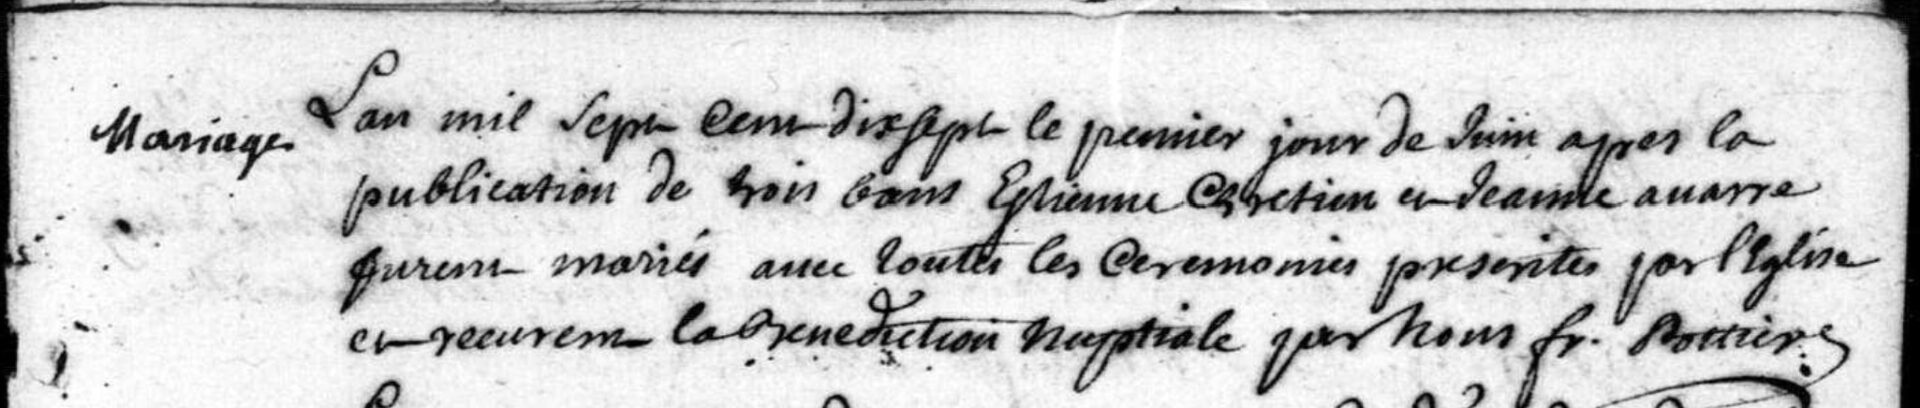 Mariage
Lan mil sept cent dixsept le premier jour de Juin apres la
publication de trois bans Estienne Chretien et Jeanne auarre
furent mariés auec toutes les Ceremonies prescrites par l'Eglise
et receurent la Benediction Nuptiale par Nous fr. Bottier